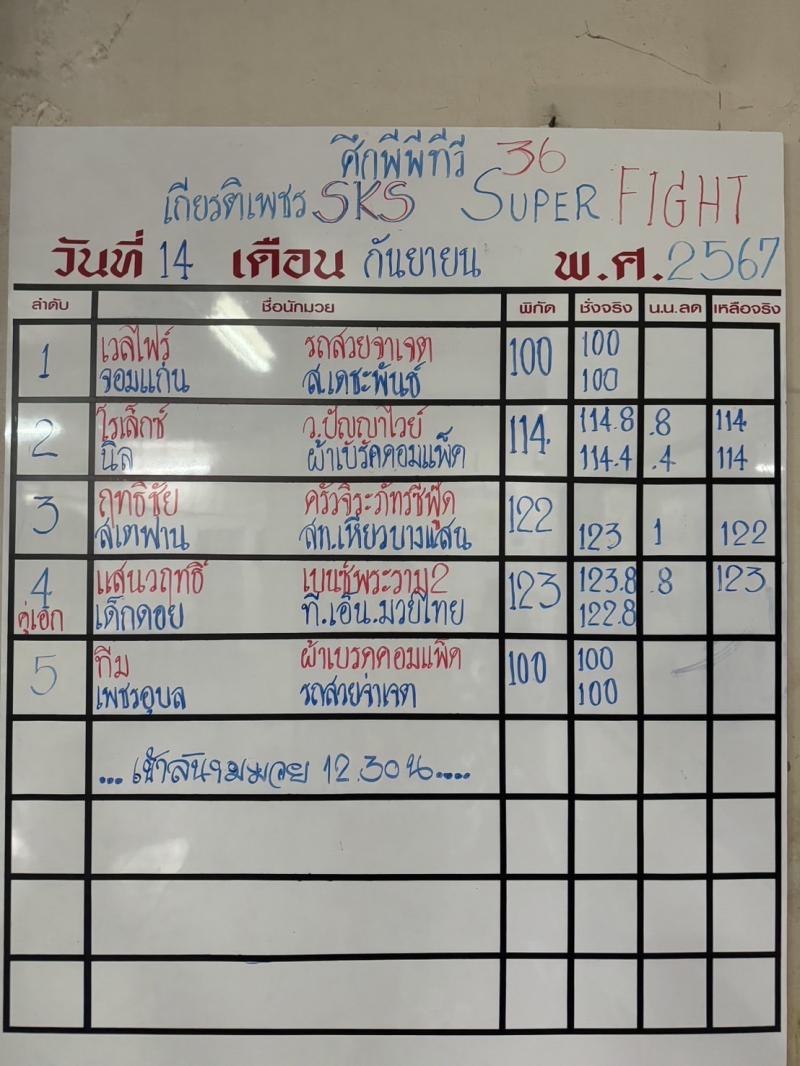 ศึกพีพีทีวี 36
เกียรติเพชร SKS SUPER FIGHT
วันที่ 14 เดือน กันยายน พ.ศ. 2567
ลำดับ ชื่อนักมวย พิกัด ชั่งจริง น.น.ลด เหลือจริง
1 เวลไฟร์ รถสวยจ่าเจต 100 100
จอมแก่น ส.เดชะพันธ์ 100
2 โรเล็กซ์ ว.ปัญญาไวย์ 114 114.8 .8 114
นิล ผ้าเบรัคคอมแพ็ค 114.4 .4 114
3 ฤทธิชัย ครัวจิระภัทรซีฟู๊ด 122
สเตฟาน สท.เหียวบางแสน 123 1 122
4 แสนวฤทธิ์ เบนซ์พระราม2 123 123.8 .8 123
คู่เอก เด็กดอย ที.เอ็น.มวยไทย 122.8
5 ทีม ผ้าเบรคคอมแพ็ค 100 100
เพชรอุบล รถสวยจ่าเจต 100
... เข้าสนามมวย 12.30 น....